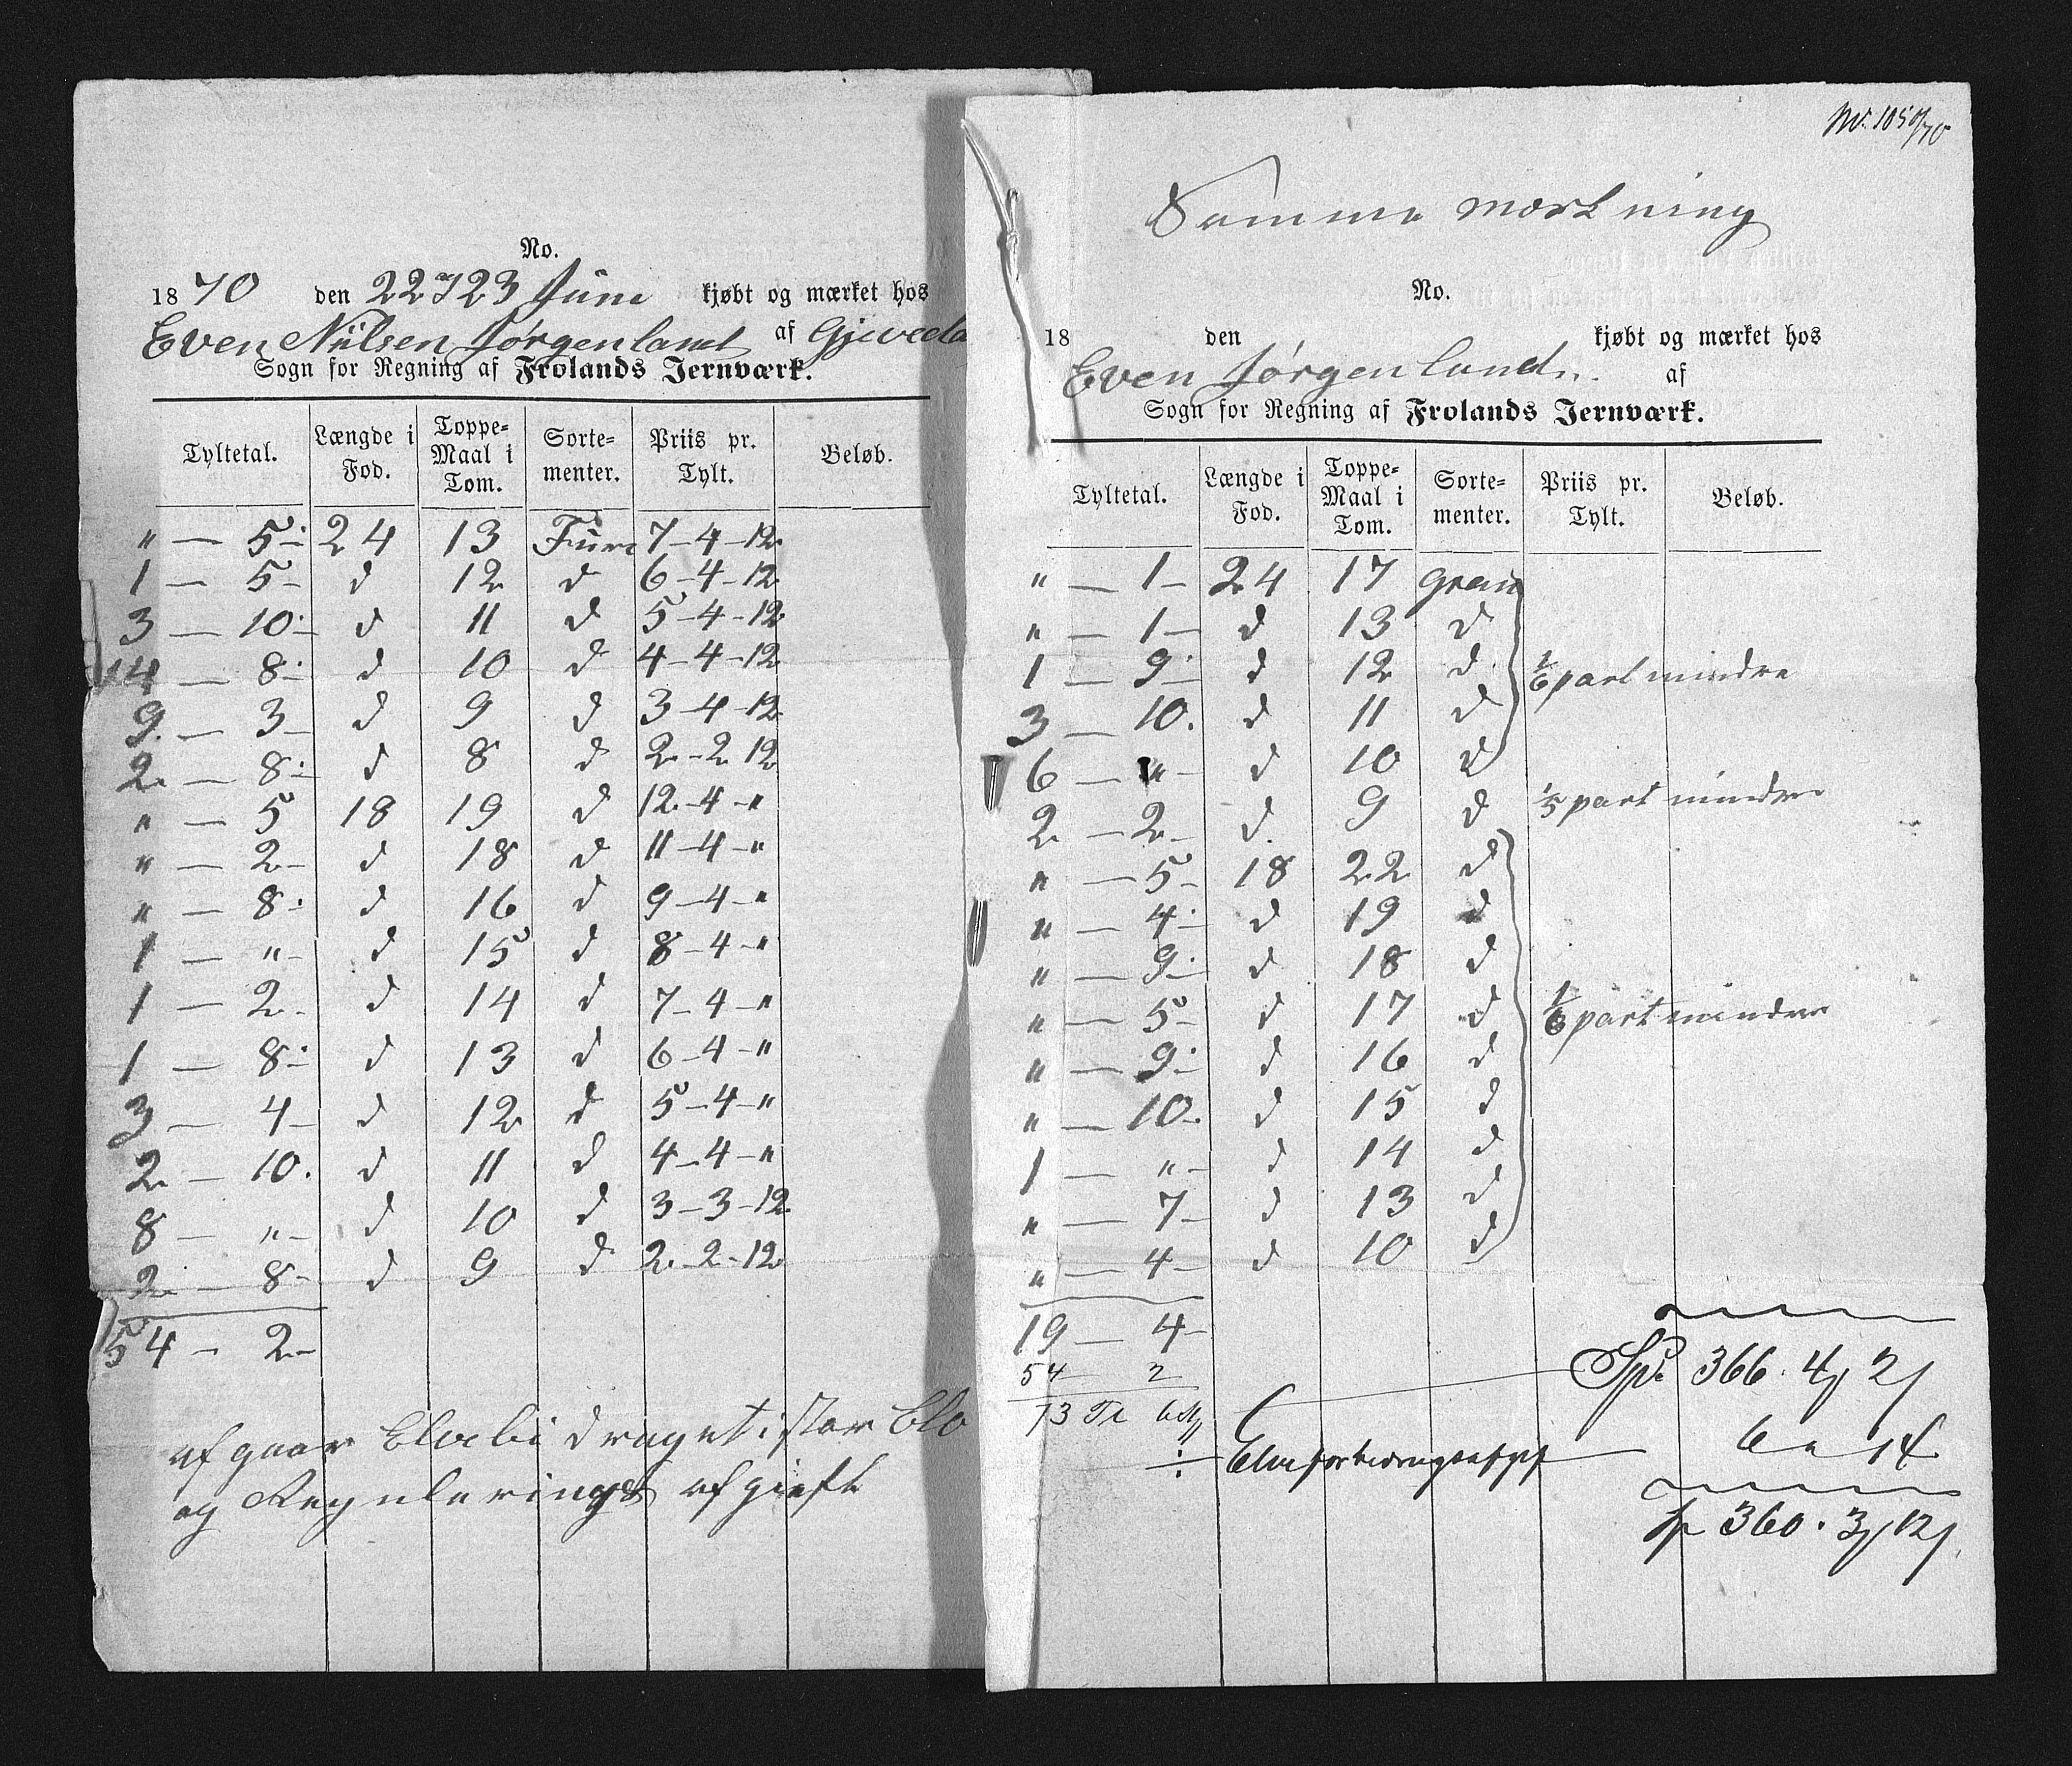 No.
1870 den 22 & 23 Juni kjøbt og mærket hos
Even Nilsen Jørgenland af Gjeveda
Sogn for Regning af Frolands Jernværk.
Tyltetal. Længde i Fod. Toppe-Maal i Tom. Sorte-menter. Priis pr. Tylt. Beløb.
" — 5 - 24 13 Furu 7-4-12
1 — 5 - d 12 d 6-4-12
3 — 10 - d 11 d 5-4-12
14 — 8 - d 10 d 4-4-12
9 — 3 d 9 d 3-4-12
2 — 8 - d 8 d 2-2-12
" — 5 18 19 d 12-4-"
" — 2 - d 18 d 11-4-"
" — 8 - d 16 d 9-4-"
1 — " - d 15 d 8-4-"
1 — 2 - d 14 d 7-4-"
1 — 8 - d 13 d 6-4-"
3 — 4 - d 12 d 5-4-"
2 — 10. d 11 d 4-4-"
8 — " - d 10 d 3-3-12
2 — 8 - d 9 d 2-2-12
54 - 2 -
afgaar Elvebidraget istor Elv
og Regulerings afgift
No. 105 a/70
Samme mærkning
No.
18 den kjøbt og mærket hos
Even Jørgenland af
Sogn for Regning af Frolands Jernværk.
Tyltetal. Længde i Fod. Toppe-Maal i Tom. Sorte-menter. Priis pr. Tylt. Beløb.
" — 1 - 24 17 gran
" — 1 - d 13 d
1 — 9 - d 12 d 1/6 part mindre
3 — 10. d 11 d
6 — " - d 10 d
2 — 2 - d 9 d 1/5 part mindre
" — 5 - 18 22 d
" — 4 - d 19 d
" — 9 - d 18 d
" — 5 - d 17 d 1/6 part mindre
" — 9 - d 16 d
" — 10 - d 15 d
1 — " - d 14 d
" — 7 - d 13 d
" — 4 - d 10 d
19 — 4 -
54 2
Spd. 366. 4 2
73 Tl 6 st
÷ Elveforbedringsafgift 6 " 14
Sp 360. 3 12